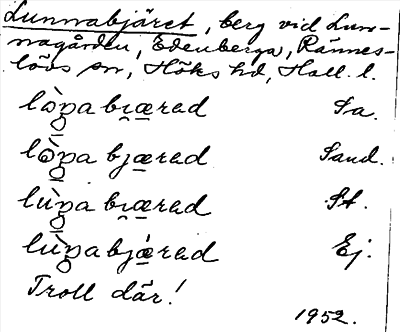 Lunnabjäret, berg vid Lun-
nagården, Edenberga, Rännes-
lövs sn, Höks hd, Hall. l.
lòŋabı̯æ̲rad Sa.
lòŋabjæ̲rad Sand.
lùŋabı̯æ̲rad St.
lùŋabjǽ̲rad Ej.
Troll där!
1952.